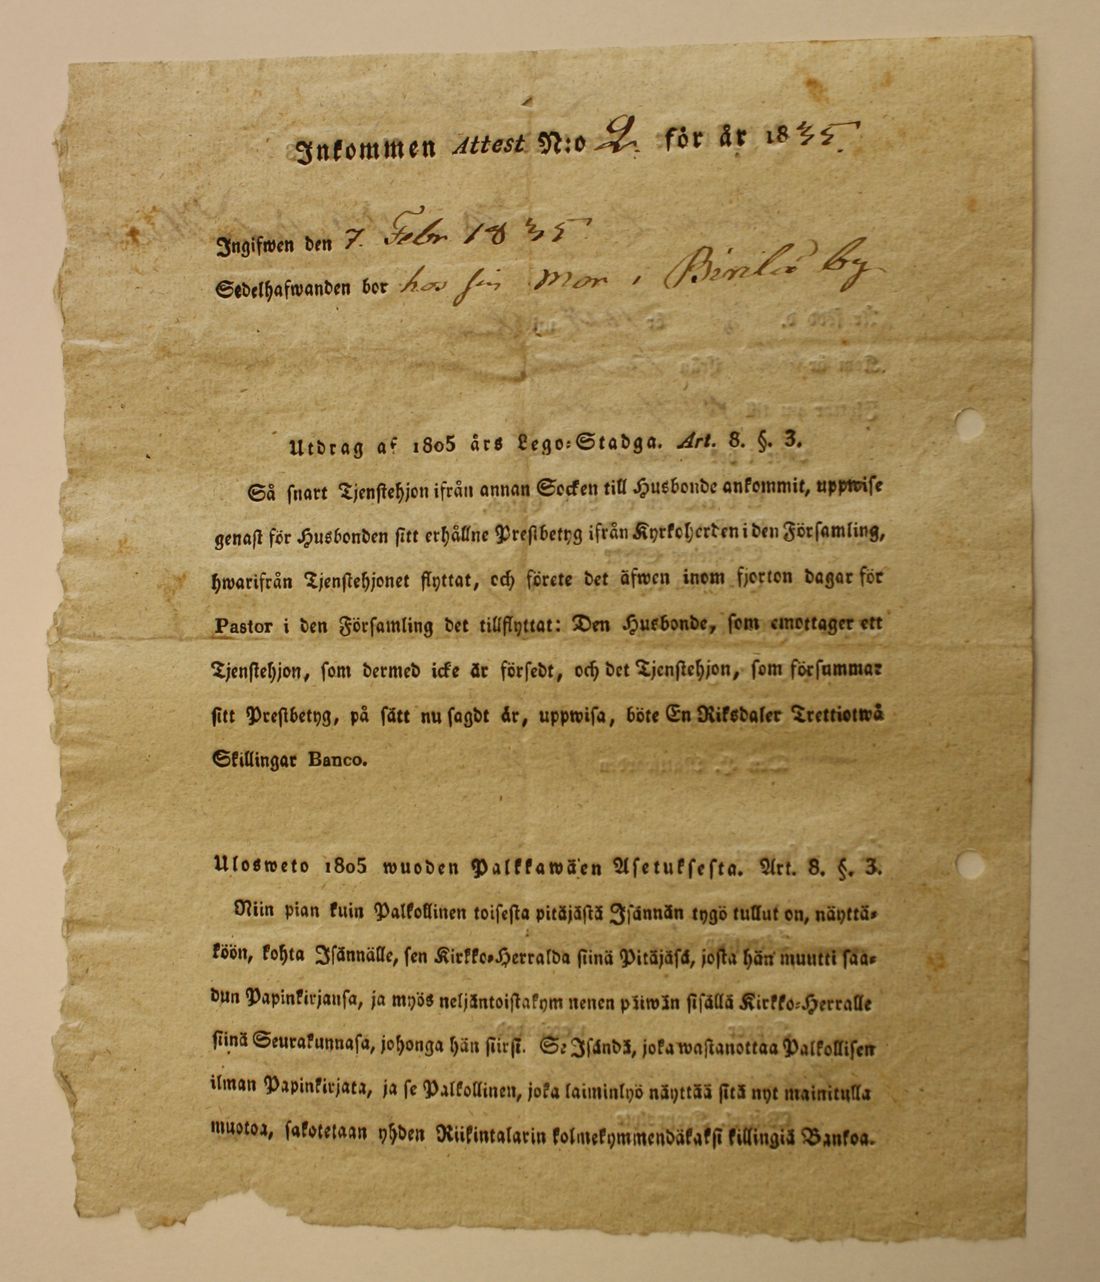 Inkommen Attest N:o 2. för år 1835.
Ingifwen den 7. Febr 1835
Sedelhafwanden bor hos sin Mor i by
Utdrag af 1805 års Lego-Stadga. Art. 8. §. 3.
Så snart Tjenstehjon ifrån annan Socken till Husbonde ankommit, uppwise
genast för Husbonden sitt erhållne Prestbetyg ifrån Kyrkoherden i den Församling,
hwarifrån Tjenstehjonet flyttat, och förete det äfwen inom fjorton dagar för
Pastor i den Församling det tillflyttat: Den Husbonde, som emottager ett
Tjenstehjon, som dermed icke är försedt, och det Tjenstehjon, som försummar
sitt Prestbetyg, på sätt nu sagdt är, uppwisa, böte En Riksdaler Trettiotwå
Skillingar Banco.
Ulosweto 1805 wuoden Palkkawäen Asetuksesta. Art. 8. §. 3.
Niin pian kuin Palkollinen toisesta pitäjästä Isännän tygö tullut on, näyttä-
köön, kohta Isännälle, sen Kirkko-Herralda siinä Pitäjäsä, josta hän muutti saa-
dun Papinkirjansa, ja myös neljäntoistakym nenen päiwän sisällä Kirkko-Herralle
siinä Seurakunnasa, johonga hän siirsi. Se Isändä, joka wastanottaa Palkollisen
ilman Papinkirjata, ja se Palkollinen, joka laiminlyö näyttää sitä nyt mainitulla
muotoa, sakotetaan yhden Riikintalarin kolmekymmendäkaksi killingiä Bankoa.